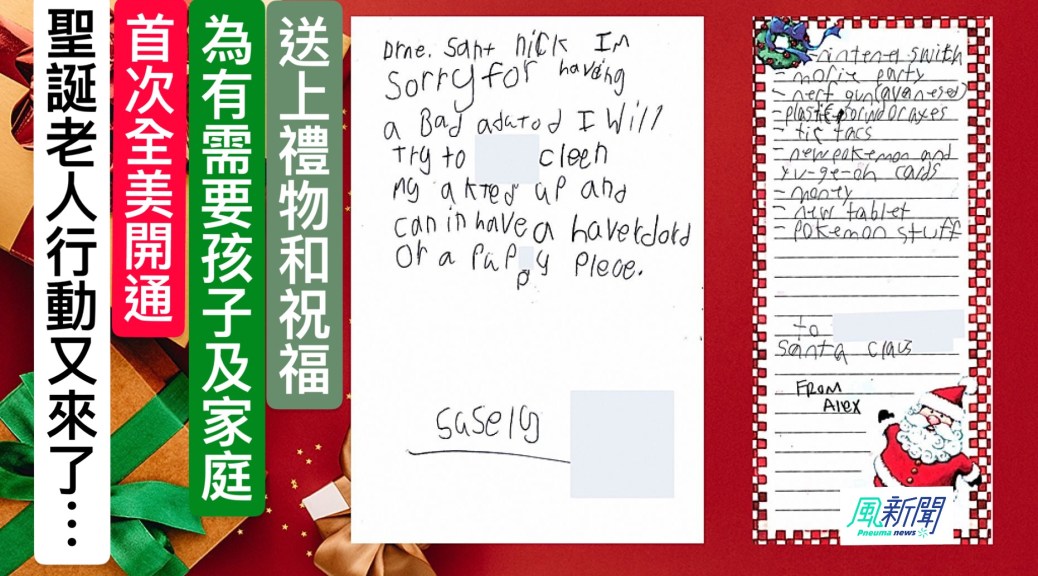 聖誕老人行動又來了…
首次全美開通
為有需要孩子及家庭
送上禮物和祝福
Drne. Sant nick Im
sorry for having
a Bad adatod I Will
Try to cleen
my akted up and
can in have a haverdord
Or a pappy plece.
sasely
nintend swith
- mofie party
- nerf gun (avanesed)
- plastic sord or axes
- tic tacs
- new pokemon and
yu-ge-oh cards
- money
- new tablet
- pokemon stuff
to
santa claus
FROM
Alex
風新聞
Pneuma news